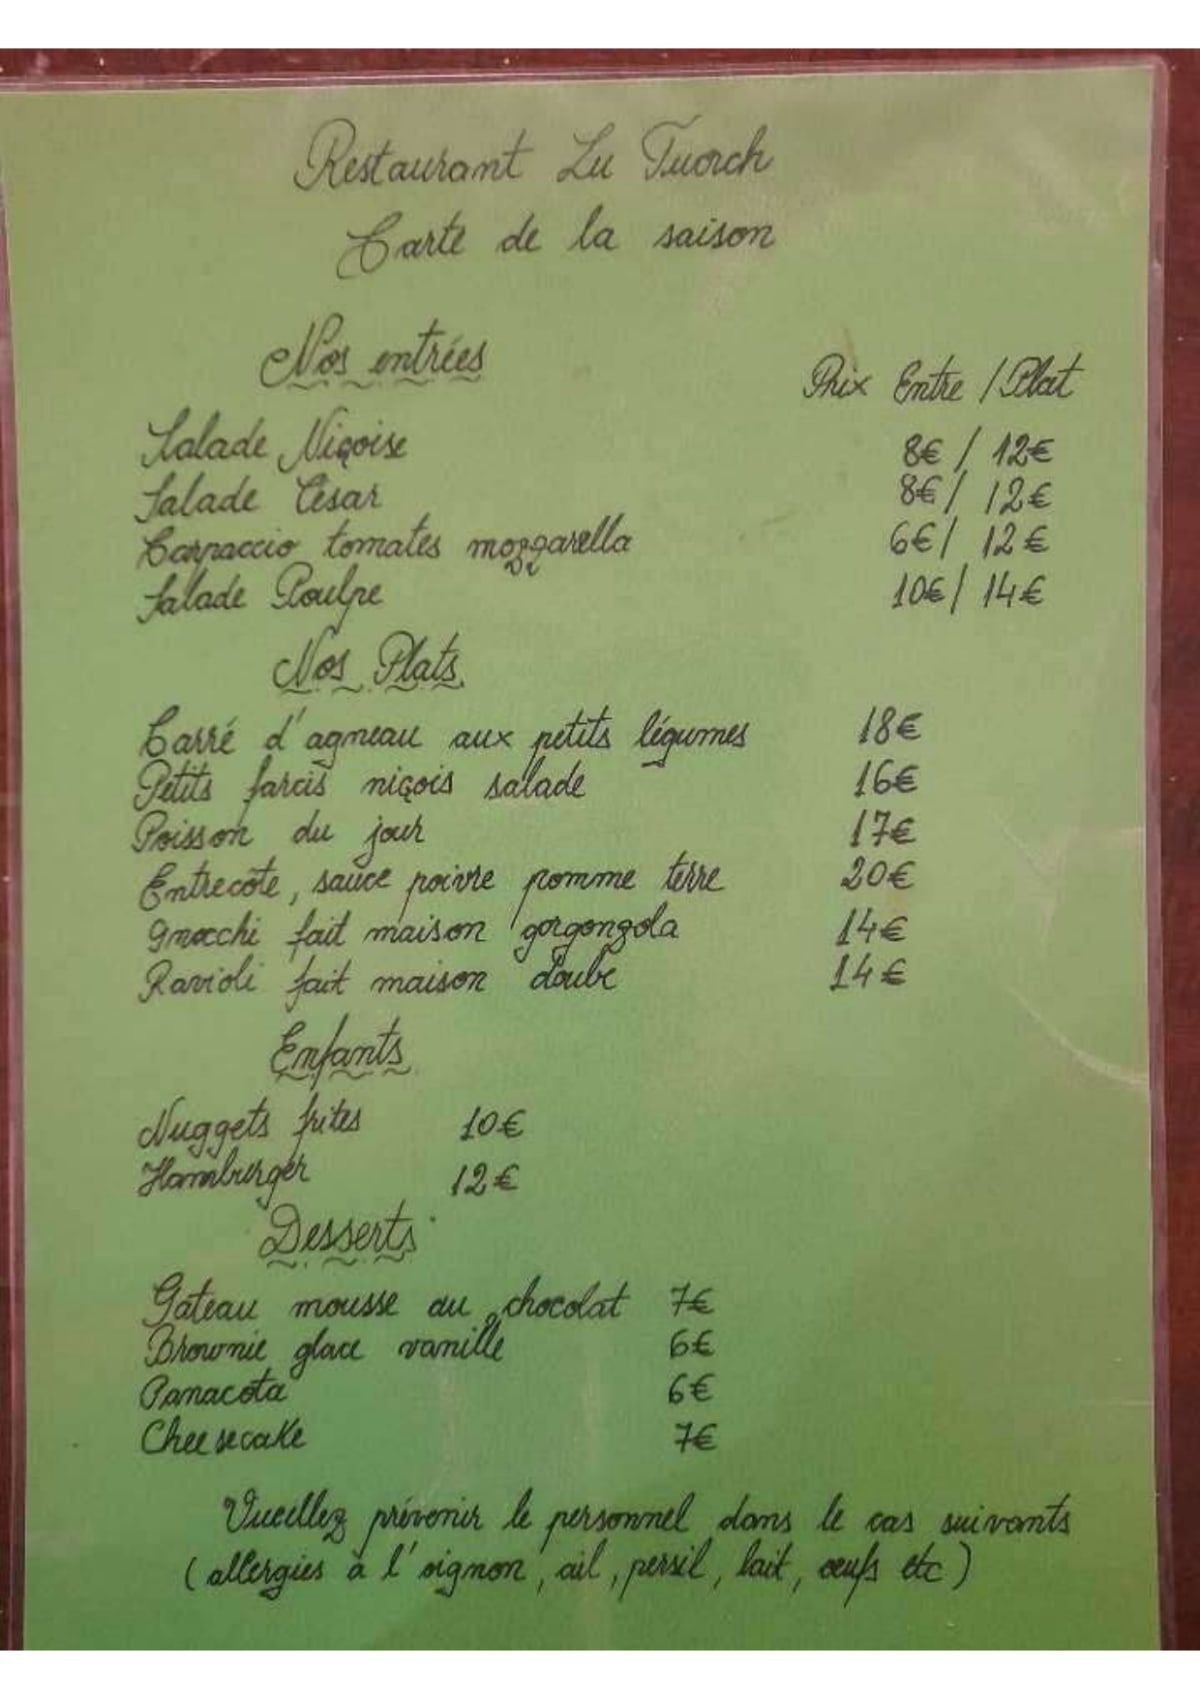 Restaurant Lu Tuorch
Carte de la saison
Nos entrées
Prix Entre / Plat
Salade Niçoise 8€ / 12€
Salade César 8€ / 12€
Carpaccio tomates mozzarella 6€ / 12€
Salade Poulpe 10€ / 14€
Nos Plats
Carré d'agneau aux petits légumes 18€
Petits farcis niçois salade 16€
Poisson du jour 17€
Entrecôte, sauce poivre pomme terre 20€
Gnocchi fait maison gorgonzola 14€
Ravioli fait maison daube 14€
Enfants
Nuggets frites 10€
Hamburger 12€
Desserts
Gateau mousse au chocolat 7€
Brownie glace vanille 6€
Panacota 6€
Cheesecake 7€
Vueillez prévenir le personnel dans le cas suivants
(allergies à l'oignon, ail, persil, lait, œufs etc)